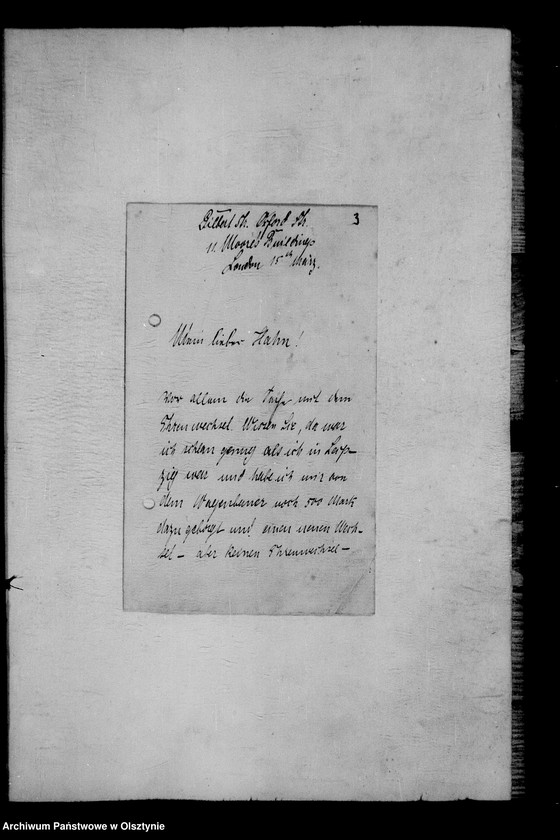 Gilbert St. Oxford St. 3
11 Moore's Buildings
London 15th März.
Mein lieber Hahn!
Vor allem die Sache mit dem
Ehrenwechsel. Wissen Sie, da war
ich schlau genug als ich in Leip-
zig war und habe ich mir von
dem Wagenbauer noch 500 Mark
dazu geborgt und einen neuen Wech-
sel – aber keinen Ehrenwechsel –
Archiwum Państwowe w Olsztynie